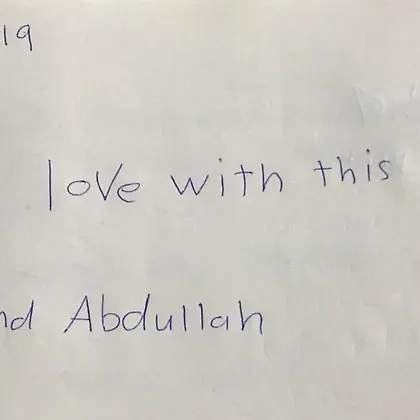 19
love with this
nd Abdullah